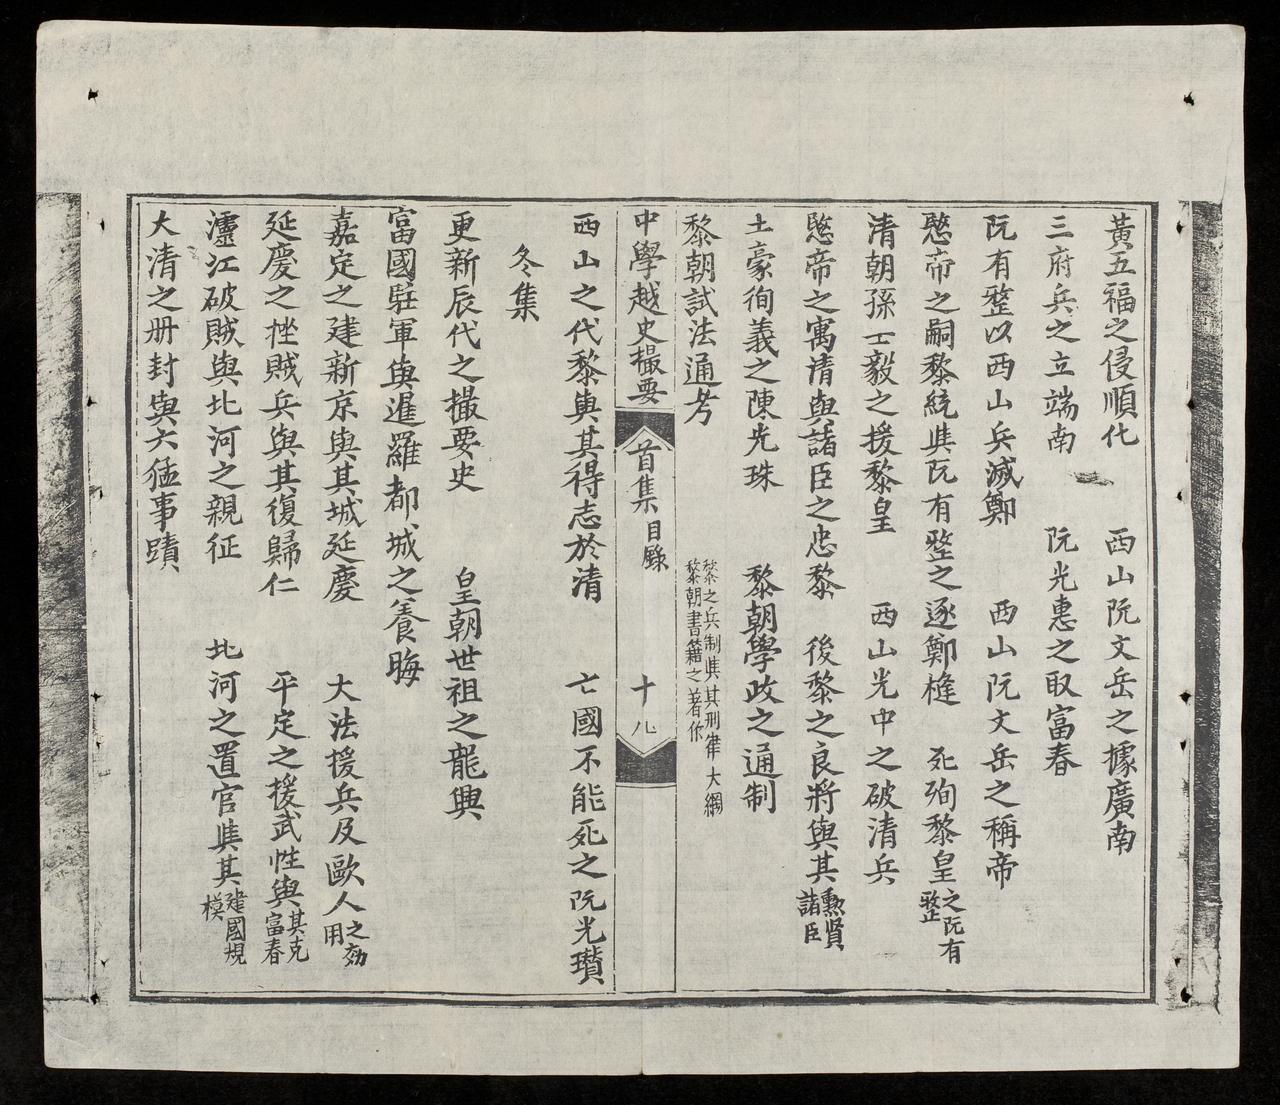 黃五福之侵順化　西山阮文岳之據廣南
三府兵之立端南　阮光惠之取富春
阮有整以西山兵滅鄭　西山阮文岳之稱帝
愍帝之嗣黎統與阮有整之逐鄭槰　死殉黎皇之阮有整
清朝孫士毅之援黎皇　西山光中之破清兵
愍帝之寓清與諸臣之忠黎　後黎之良將與其勲賢諸臣
土豪徇義之陳光珠　黎朝學政之通制
黎朝試法通考　黎之兵制與其刑律大綱
黎朝書籍之著作
中學越史撮要　首集目錄　十九
西山之代黎與其得志於清　亡國不能死之阮光瓚
冬集
更新辰代之撮要史　皇朝世祖之龍興
富國駐軍與暹羅都城之養晦
嘉定之建新京與其城延慶　大法援兵及歐人之効用
延慶之挫賊兵與其復歸仁　平定之援武性與其克富春
㵢江破賊與北河之親征　北河之置官與其建國規模
大清之册封與六猛事蹟